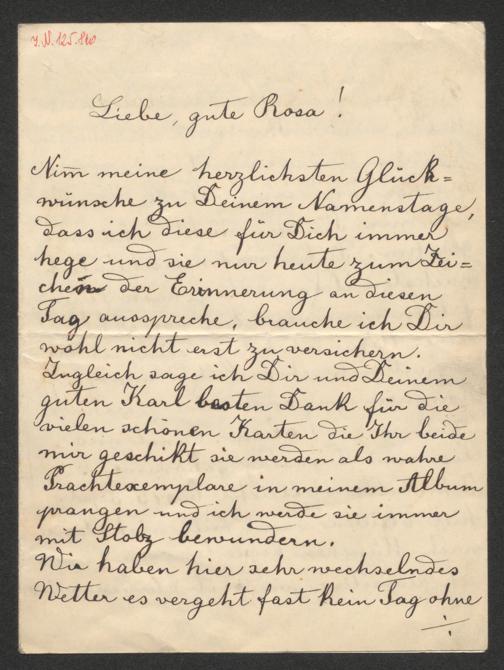 J.N. 125.810
Liebe, gute Rosa!
Nim̄ meine herzlichsten Glück=
wünsche zu Deinem Namenstage,
dass ich diese für Dich immer
hege und sie nur heute zum Zei=
chen der Erinnerung an diesen
Tag ausspreche, brauche ich Dir
wohl nicht erst zu versichern.
Zugleich sage ich Dir und Deinem
guten Karl besten Dank für die
vielen schönen Karten die Ihr beide
mir geschikt sie werden als wahre
Prachtexemplare in meinem Album
prangen und ich werde sie immer
mit Stolz bewundern.
Wir haben hier sehr wechselndes
Wetter es vergeht fast kein Tag ohne
÷